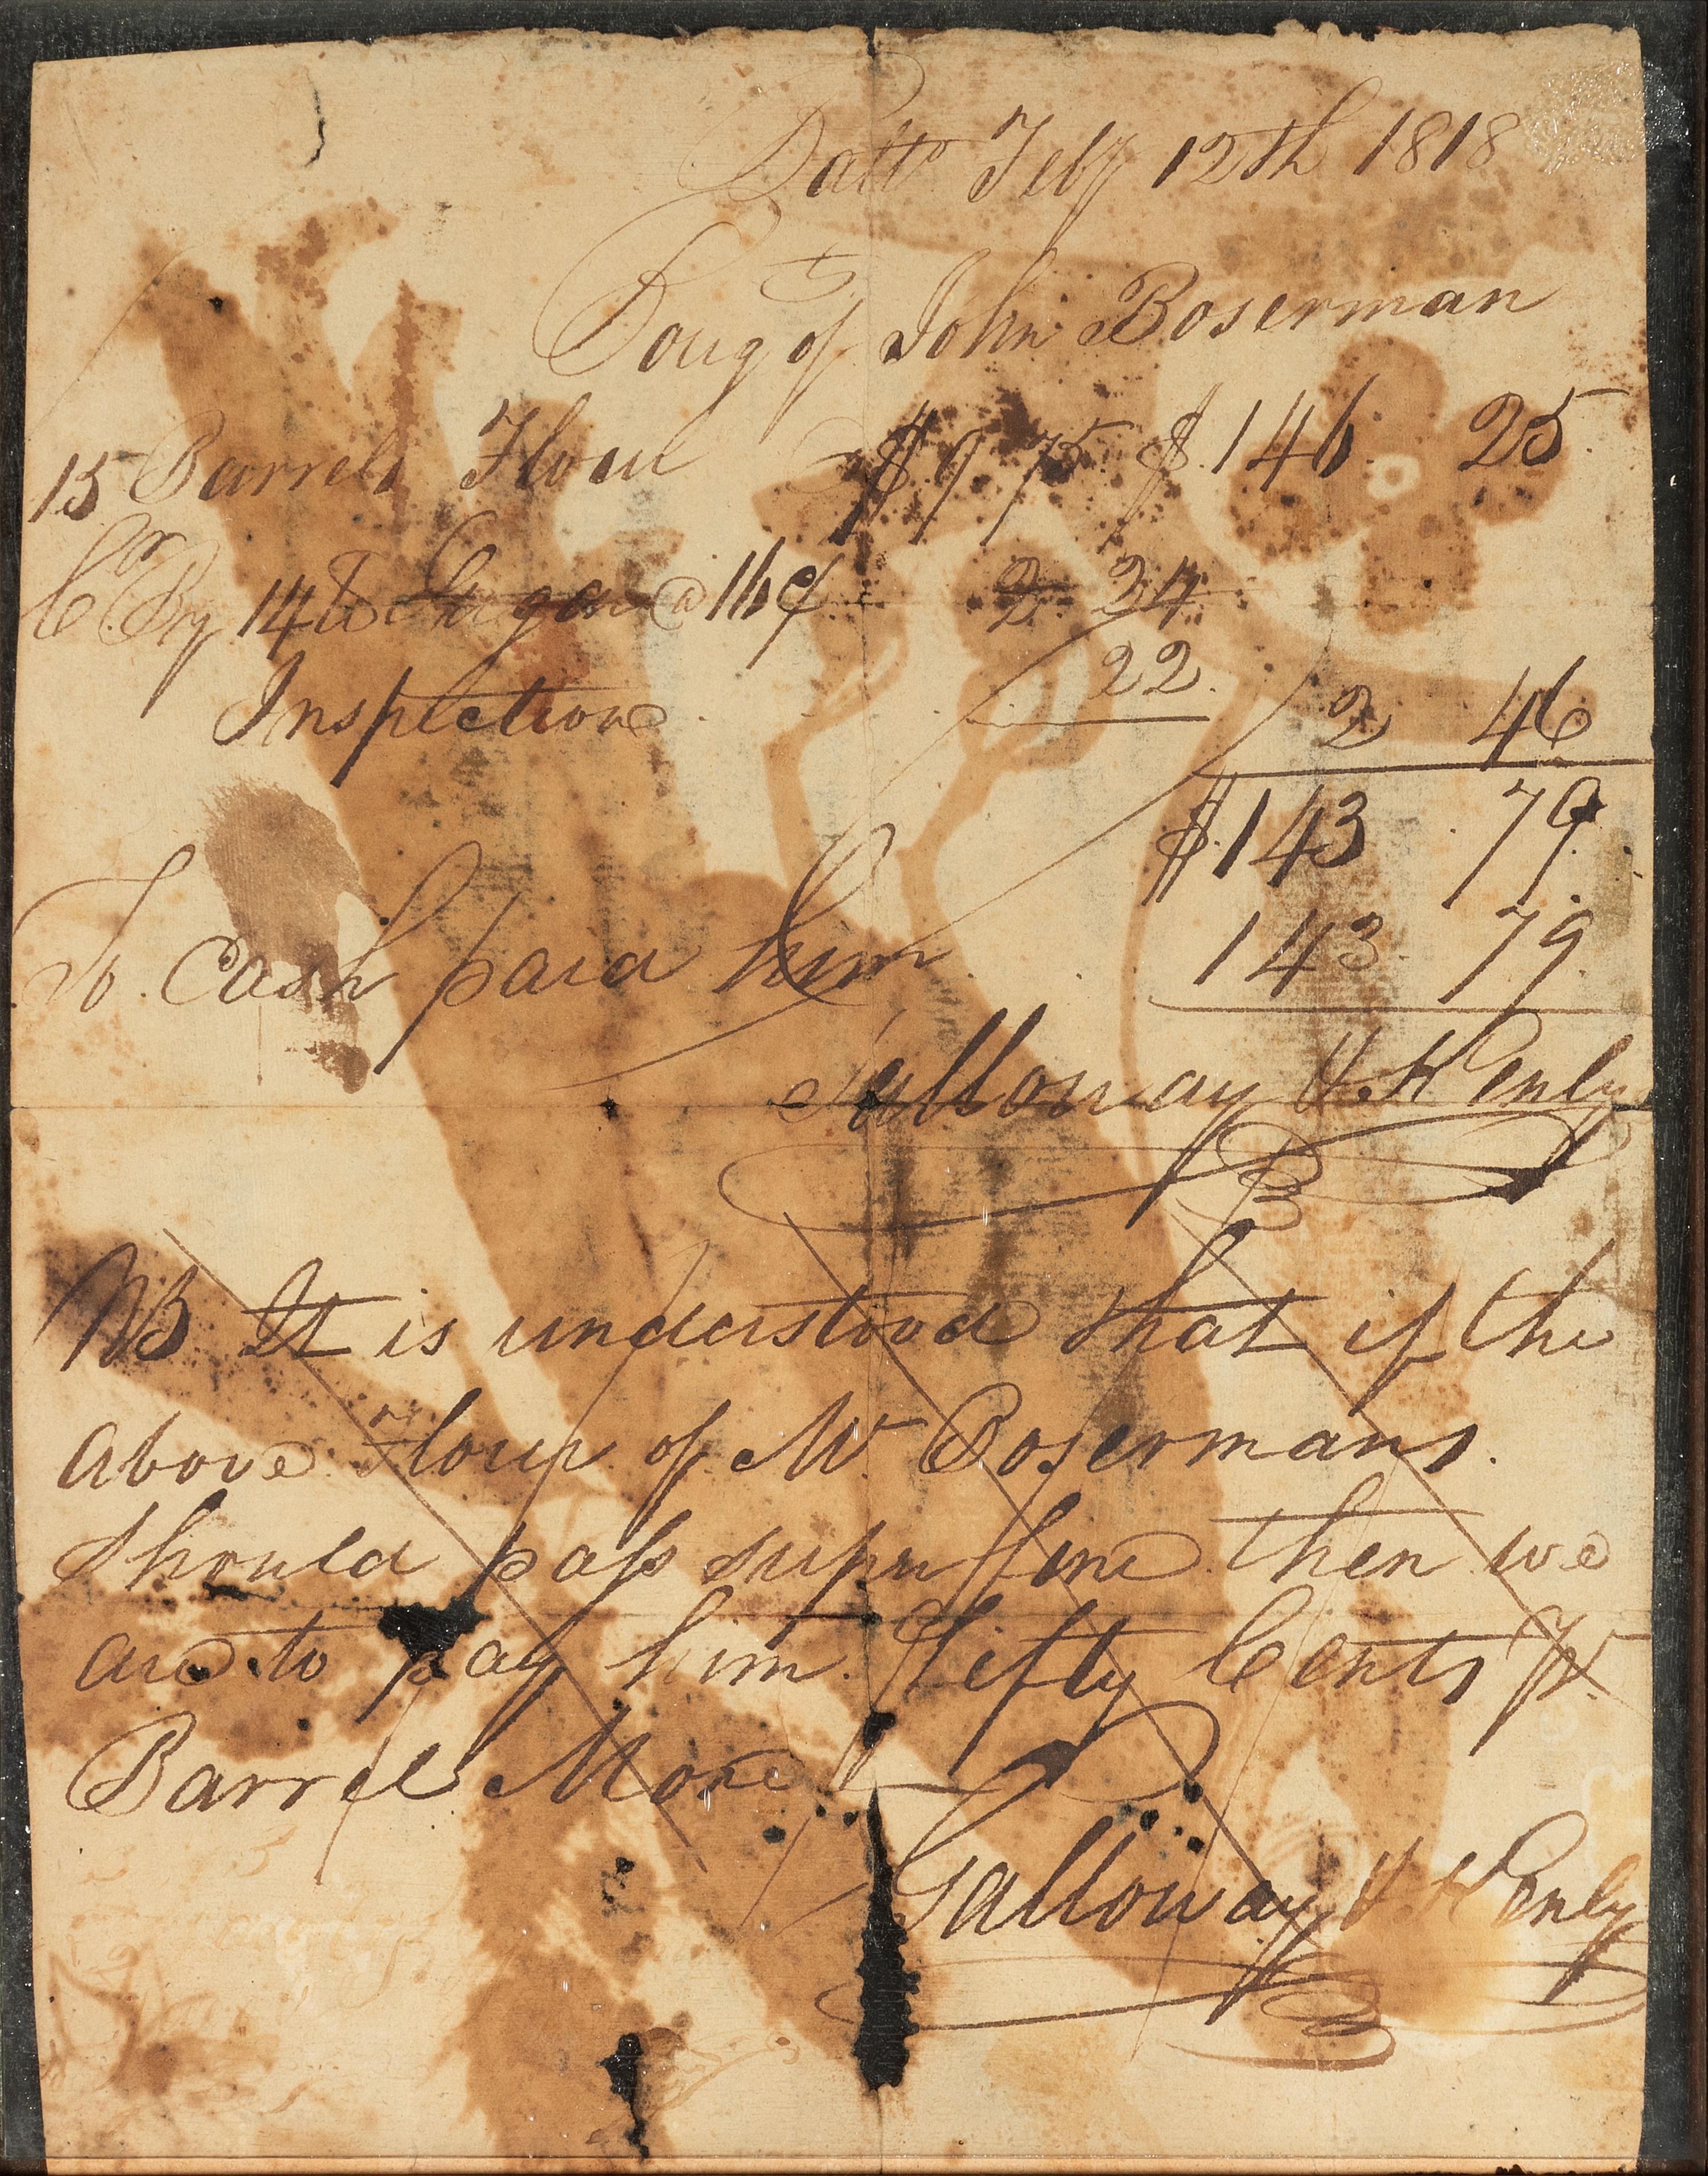 Balto Feby 12th 1818
Boug t of John Boserman
15 Barrels Flour @ $9 75 $ 146 25
Cr By 14 lb Sugar @ 16 ¢ 2 24
Inspection 22
2 46
$ 143 79
To Cash paid him 143 79
Galloway & Kenly
NB It is understood that if the
above Flour of Mr Bosermans
should pass super fine then we
are to pay him Fifty Cents Pr
Barrel More
Galloway & Kenly